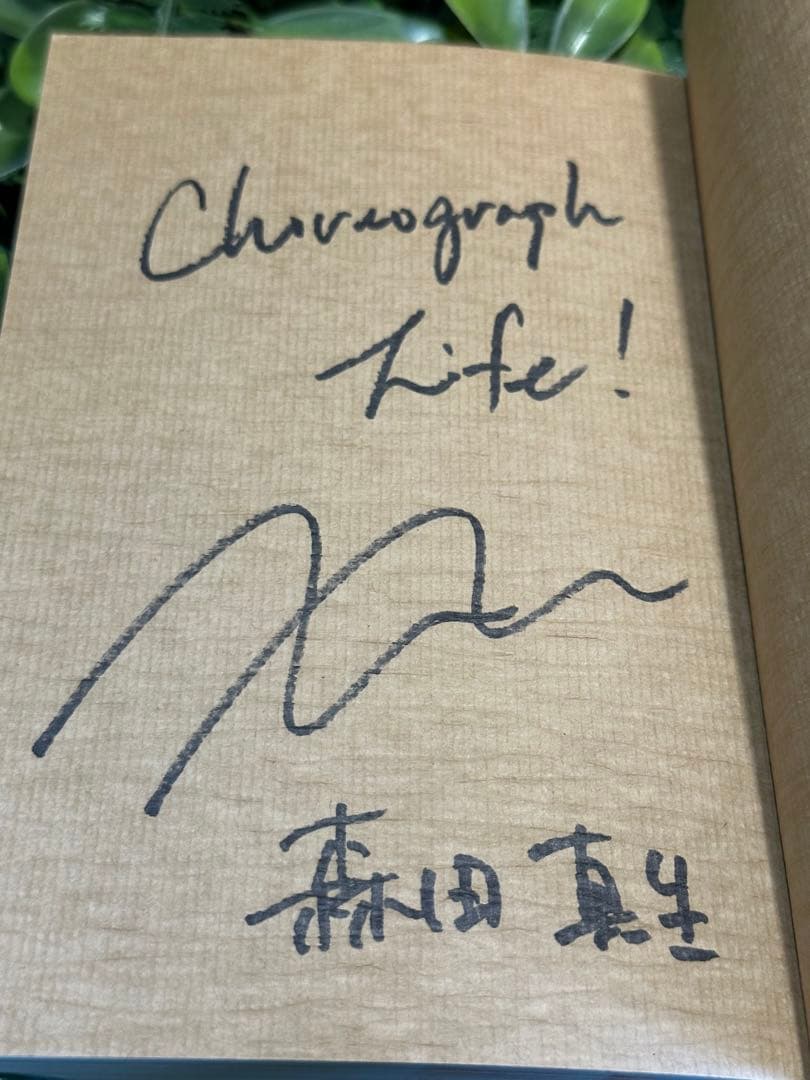 Choreograph
Life!
森田 真生